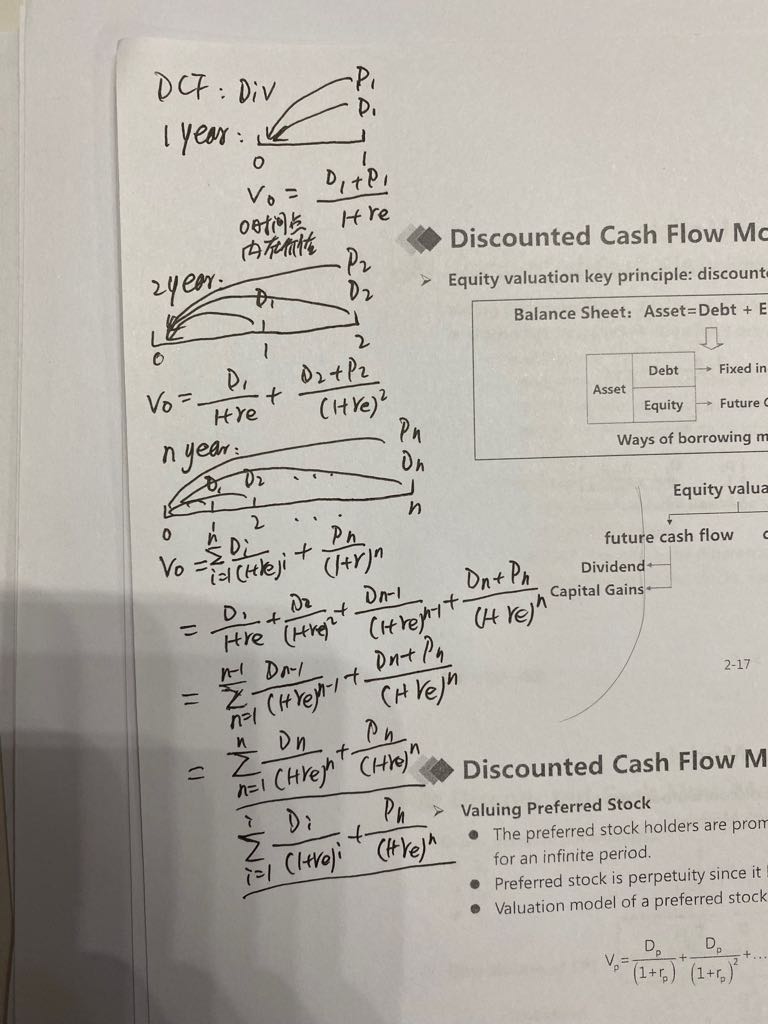 DCF: Div
P₁
D₁
1 year:
0 1
V₀ = (D₁+P₁)/(1+re)
0时间点
内在价值
2 year:
P₂
D₁ D₂
0 1 2
V₀ = D₁/(1+re) + (D₂+P₂)/(1+re)²
n year:
Pn
D₁ D₂ ... Dn
0 1 2 ... n
V₀ = Σ_{i=1}^{n} Di/(1+re)^i + Pn/(1+r)^n
= D₁/(1+re) + D₂/(1+re)² + Dn-1/(1+re)^{n-1} + (Dn+Pn)/(1+re)^n
= Σ_{n=1}^{n-1} Dn-1/(1+re)^{n-1} + (Dn+Pn)/(1+re)^n
= Σ_{n=1}^{n} Dn/(1+re)^n + Pn/(1+re)^n
Σ_{i=1}^{i} Di/(1+re)^i + Pn/(1+re)^n
Discounted Cash Flow Mo
➢ Equity valuation key principle: discounte
Balance Sheet: Asset=Debt + E
Asset
Debt → Fixed in
Equity → Future C
Ways of borrowing m
Equity valua
future cash flow
Dividend
Capital Gains
2-17
Discounted Cash Flow M
➢ Valuing Preferred Stock
● The preferred stock holders are prom
for an infinite period.
● Preferred stock is perpetuity since it
● Valuation model of a preferred stock
Vp = Dp/(1+rp) + Dp/(1+rp)² + ...